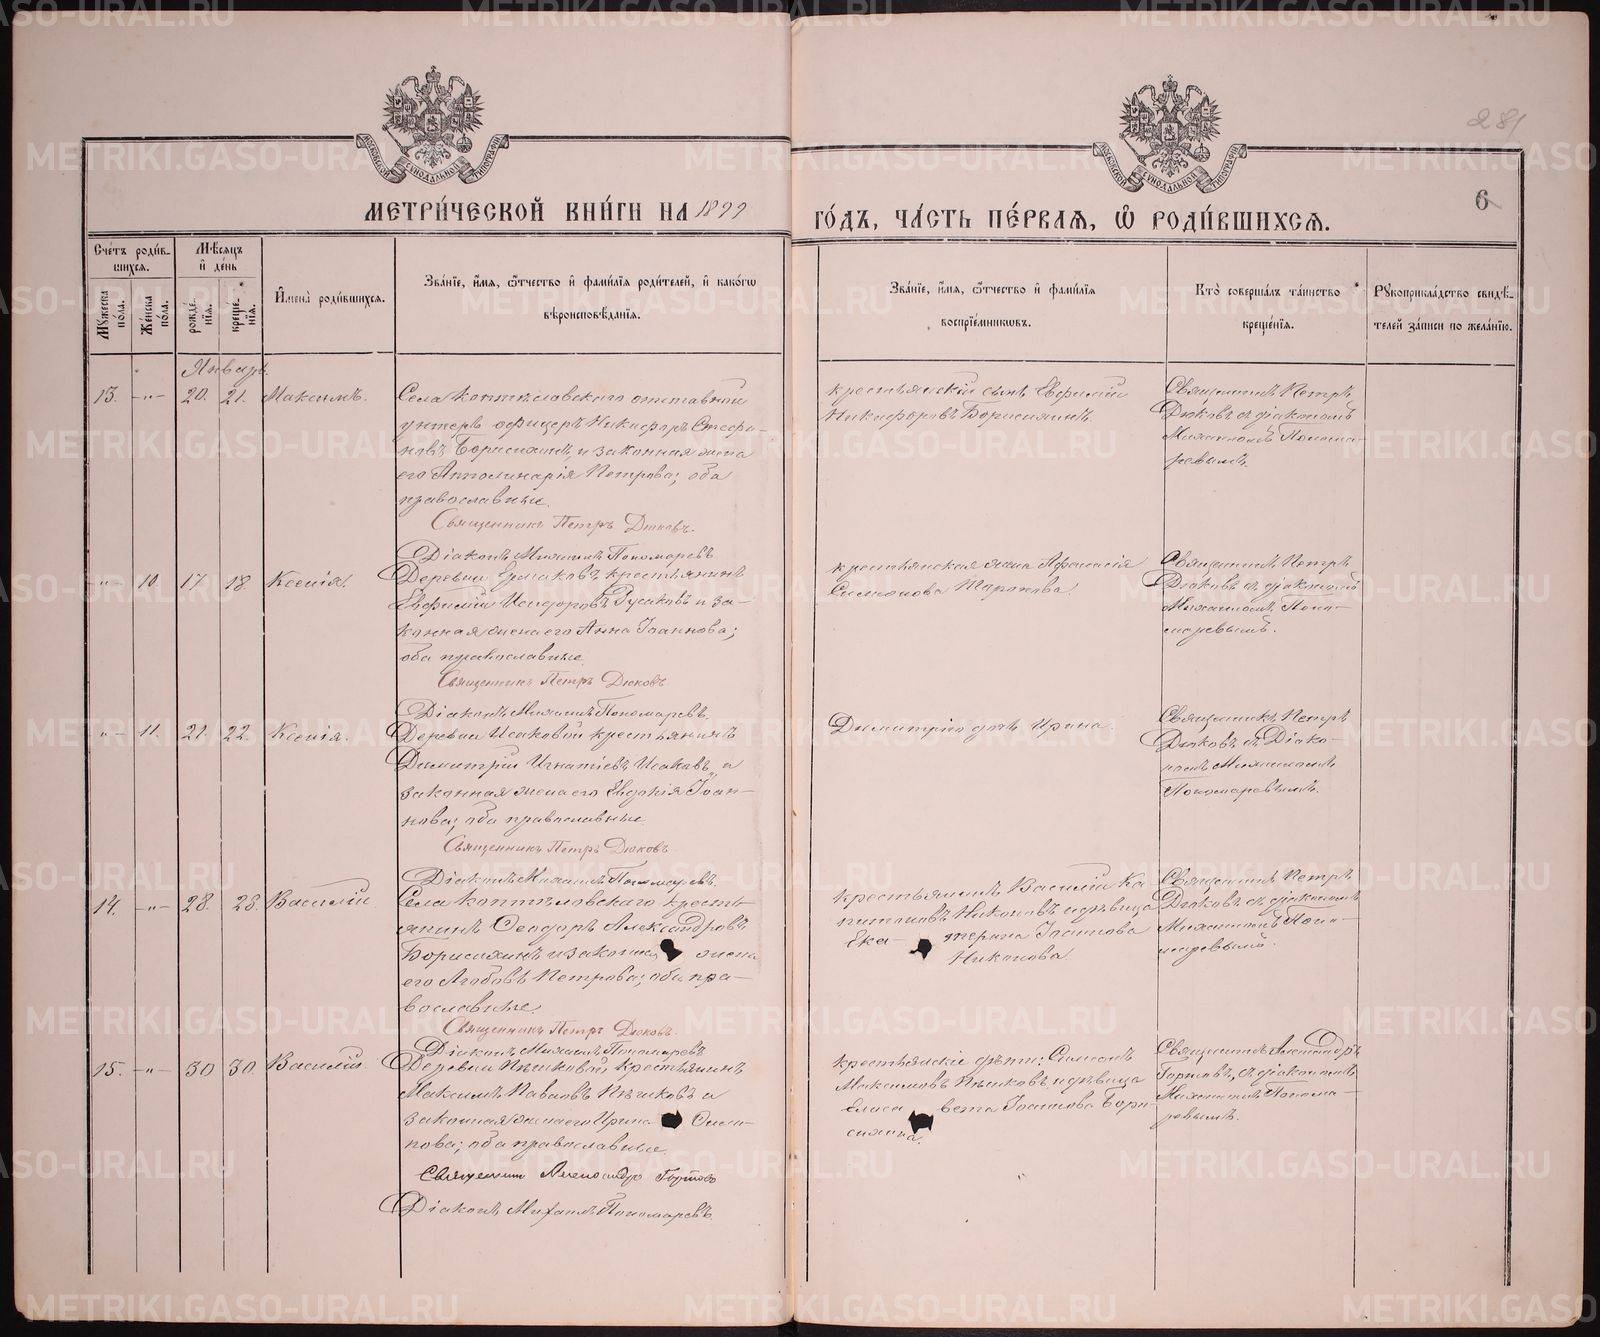 МЕТРИ́ЧЕСКОЙ КНИ́ГИ НА 1899
ГО́ДЪ, ЧА́СТЬ ПЕ́РВАЯ, Ѡ РОДИ́ВШИХСЯ.
281
6
Сче́тъ роди́в-
шихся.
Мѣ́сяцъ
и́ де́нь
Му́жеска
по́ла.
Же́нска
по́ла.
рожде́-
нїя.
креще́-
нїя.
И҆мена̀ роди́вшихся.
Зва́нїе, и҆́мя, ѻ҆́тчество и҆ фами́лїѧ роди́телей, и҆ како́гѡ
вѣроисповѣ́данїя.
Зва́нїе, и҆́мя, ѻ҆́тчество и҆ фами́лїя
воспрїе́мникѡвъ.
Кто̀ соверша́лъ та́инство
креще́нїя.
Рꙋкоприкла́дство свидѣ́-
телей за́писи по жела́нїю.
Январь.
13. -„- 20. 21. Максимъ.
Села Коптѣловскаго отставный
унтеръ офицеръ Никифоръ Стефа-
новъ Борисихинъ и законная жена
его Апполинарія Петрова; оба
православные.
Священникъ Петръ Дюковъ.
Діаконъ Михаилъ Пономаревъ
крестьянскій сынъ Евфимій
Никифоровъ Борисихинъ.
Священникъ Петръ
Дюковъ съ діакономъ
Михаиломъ Понома-
ревымъ.
-„- 10. 17. 18. Ксенія.
Деревни Ермаковъ крестьянинъ
Евфимій Исидоровъ Русаковъ и за-
конная жена его Анна Іоаннова;
оба православные
Священникъ Петръ Дюковъ
Діаконъ Михаилъ Пономаревъ.
крестьянская жена Афанасія
Симонова
Священникъ Петръ
Дюковъ съ діакономъ
Михаиломъ Поно-
маревымъ.
„- 11. 21. 22. Ксенія.
Деревни Исаковой крестьянинъ
Димитрій Игнатіевъ Исаковъ и
законная жена его Евдокія Іоан-
нова; оба православные
Священникъ Петръ Дюковъ
Діаконъ Михаилъ Пономаревъ.
Димитрія дочь Ирина.
Священникъ Петръ
Дюковъ съ Діако-
номъ Михаиломъ
Пономаревымъ.
14. -„- 28. 28. Василій
Села Коптѣловскаго кресть-
янинъ Ѳеодоръ Александровъ
Борисихинъ и законна жена
его Любовь Петрова; оба пра-
вославные.
Священникъ Петръ Дюковъ.
Діаконъ Михаилъ Пономаревъ
крестьянинъ Василій Ка
питоновъ Никоновъ и дѣвица
Ека- терина Іоаннова
Никонова.
Священникъ Петръ
Дюковъ съ діакономъ
Михаиломъ Поно-
маревымъ.
15. -„- 30 30. Василій.
Деревни Пѣшковой, крестьянинъ
Максимъ Павловъ Пѣшковъ и
законная жена его Ирина Симо-
нова; оба православные.
Священникъ Александръ Горновъ
Діаконъ Михаилъ Пономаревъ
крестьянскіе дѣти: Симеонъ
Максимовъ Пѣшковъ и дѣвица
Елиса вета Іоаннова Бори-
сихина.
Священникъ Александръ
Горновъ, съ діакономъ
Михаиломъ Понома-
ревымъ.
METRIKI.GASO-URAL.RU